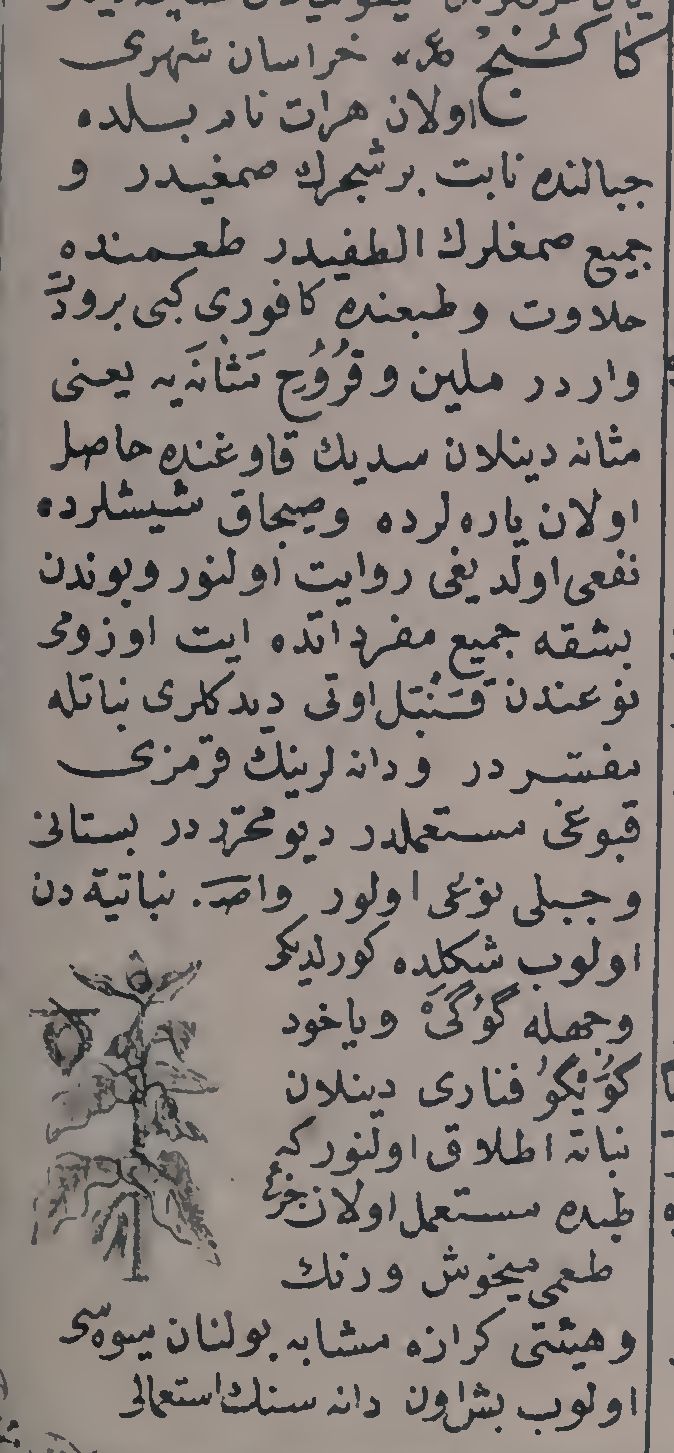 كاكُنج خراسان شهرى
اولان هرات نام بـلده
جبالنده نابت بر شجرك صمغيدر و
جميع صمغلرك الطفيدر طعمنده
حلاوت وطبعنده كافورى كبى برودت
واردر ملين وقُرُوُح مَثَانَه يه يعنى
مثانه دينلان سديك قاوغنده حاصل
اولان ياره لرده وصيجاق شيشلرده
نفعى اولديغى روايت اولنور وبوندن
بشقه جميع مفرداتده ايت اوزومى
نوعندن قَنْبَل اوتى ديدكلرى نباتله
مفسر در ودانه لرينك قرمزى
قبوغى مستعملدر ديو محرّر در بستانى
وجبلى نوعى اولور نباتيه دن
اولوب شكلده كورلديكى
وجهله كَوُكَىْ وياخود
كُوَيْكُو فنارى دينلان
نباته اطلاق اولنور كه
طبده مستعمل اولان جزئى
طعمى ميخوش ورنك
وهيئتى كرازه مشابه بولنان ميوه سى
اولوب بش اون دانه سنك استعمالى